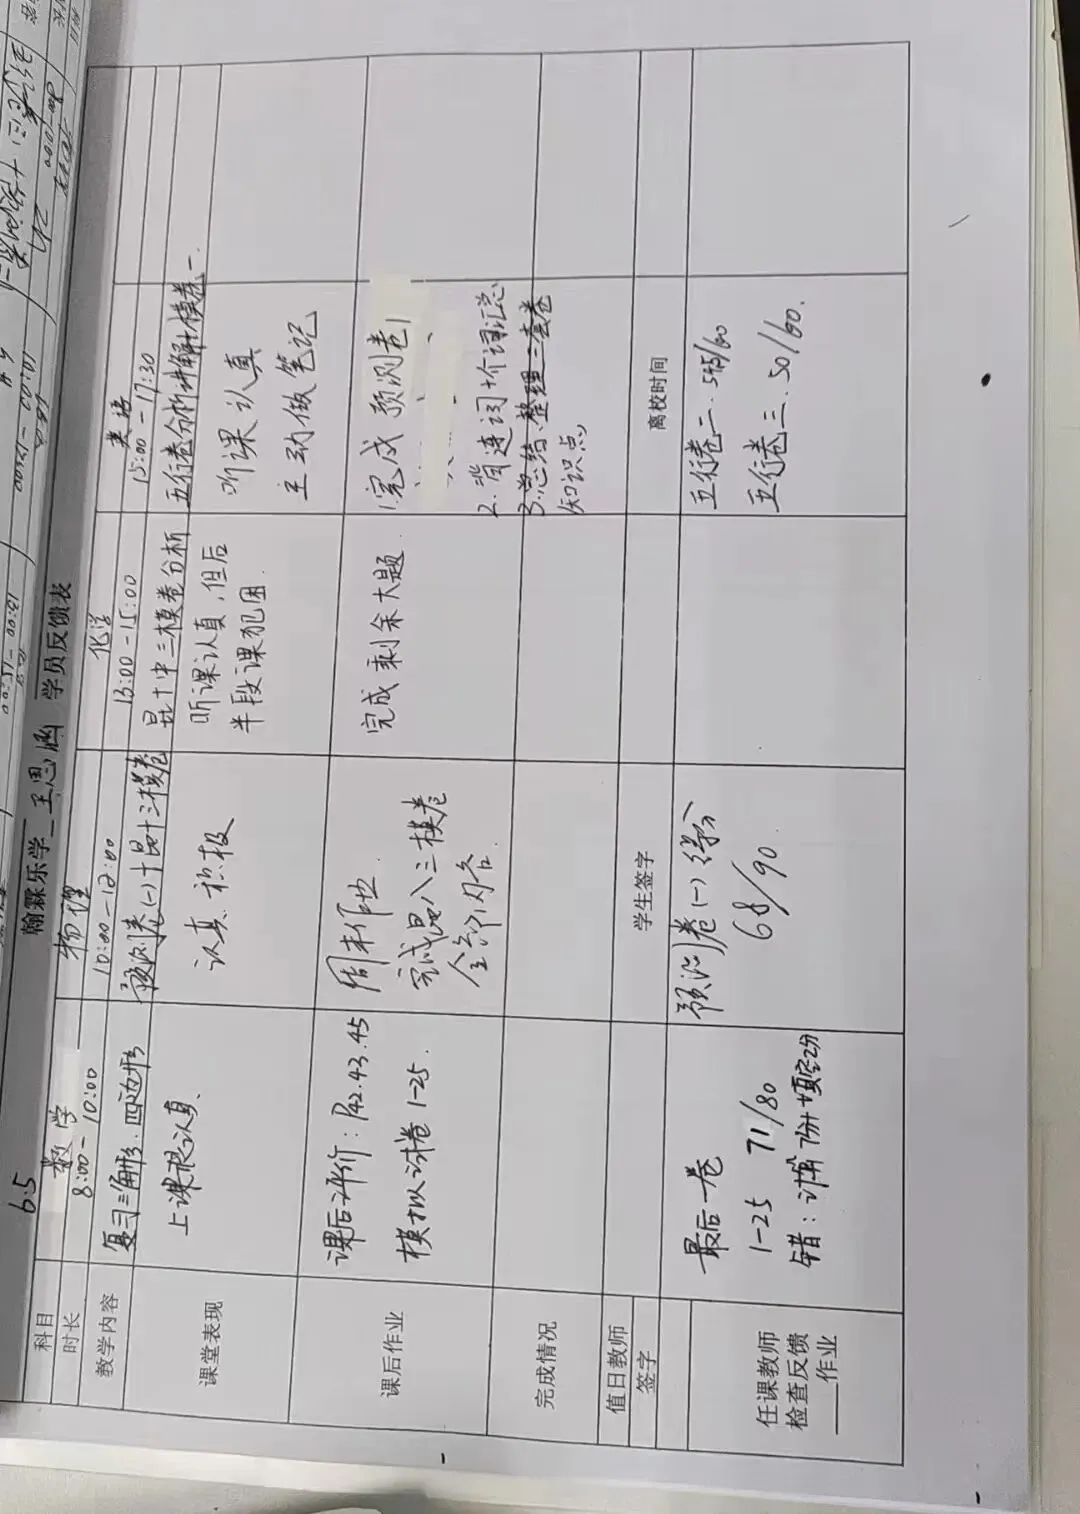 6.5
翰霖乐学 王思涵 学员反馈表
科目 数学 物理 化学 英语
时长 8:00-10:00 10:00-12:00 13:00-15:00 15:00-17:30
教学内容 复习三角形、四边形 预测卷(一)+昆十三模卷 昆十中三模卷分析 五行卷分析讲解+模卷一
课堂表现
上课很认真、
认真、积极
听课认真,但后
半段课犯困.
听课认真
主动做笔记
课后作业
课后评价:P42.43.45
模拟试卷1-25.
周末作业
完成昆八三模卷
全部内容.
完成剩余大题.
1.完成预测卷1
2.背连词+介词汇总
3.总结、整理三套卷
知识点
完成情况
值日教师
签字
学生签字
离校时间
任课教师
检查反馈
作业
最后一卷
1-25 71/80
预测卷(一)得分
68/90
五行卷二.
五行卷三.50/60.